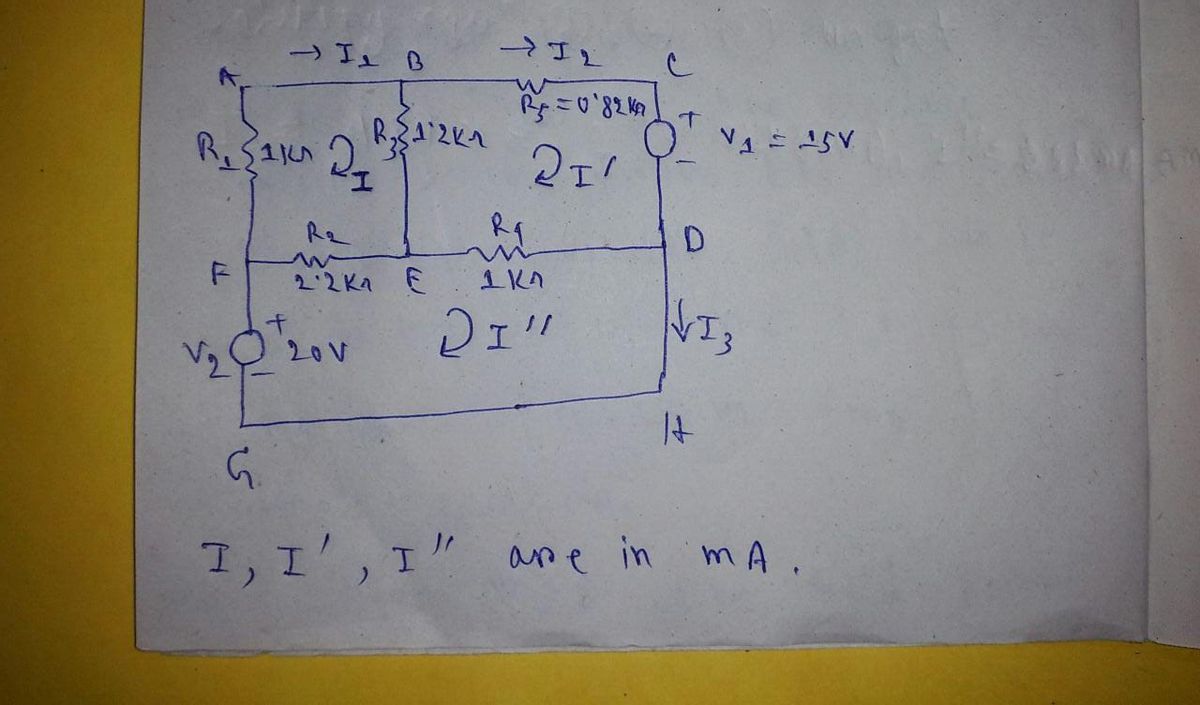 → I1 B → I2 C
A
R5 = 0.82KΩ
R1 1KΩ I R3 1.2KΩ I' + V1 = 15V
-
R2 R4 D
F 2.2KΩ E 1KΩ
+ I'' ↓I3
V2 20V
-
H
G
I, I', I'' are in mA.